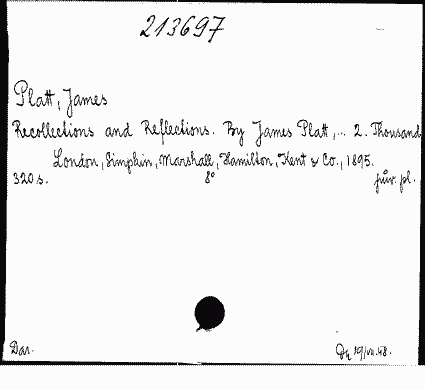 213697
Platt, James
Recollections and Reflections. By James Platt,... 2. Thousand
London, Simpkin, Marshall, Hamilton, Kent & Co., 1895.
320 s. 8° pův. pl.
Dar. 19/VII.48.